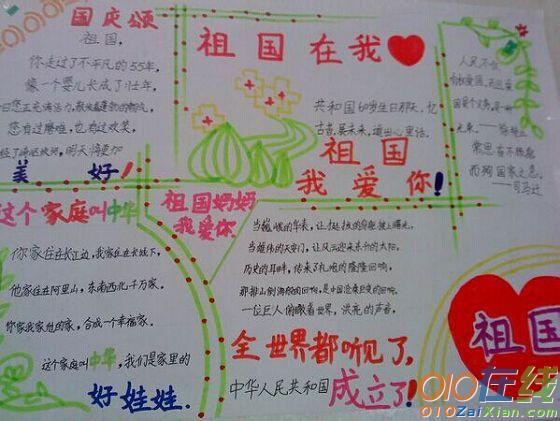 国庆颂
祖国，
你走过了不平凡的55年，
像一个婴儿长成了壮年，
您有过磨难，也有过欢笑，
明天将更加
美 好！
祖国在我
共和国60岁生日那天，忆
古昔，展未来，道出心里话，
祖国
我爱你！
常思奋不顾身
而殉国家之急。
——司马迁
这个家庭叫中华
你家住在长江边，我家住在长城下，
他家住在阿里山，东南西北千万家，
你家我家他的家，合成一个幸福家。
这个家庭叫中华，我们是家里的
好娃娃．
祖国妈妈
我爱你
当巍峨的华表，让挺拔的身躯披上曙光，
当雄伟的天安门，让风云迎来东升的太阳，
历史的耳畔，传来了礼炮的隆隆回响，
那排山倒海般的回响，是中国沧桑巨变的回响。
一位巨人俯瞰着世界，洪亮的声音，
全世界都听见了，
中华人民共和国成立了！
祖国
010在线
010ZaiXian.com